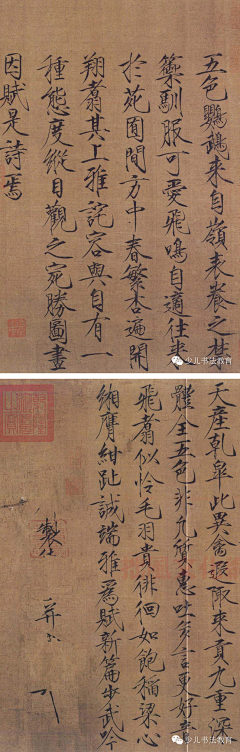 五色鸚鵡來自嶺表養之禁
籞馴服可愛飛鳴自適往來
於苑囿間方中春繁杏遍開
翔翥其上雅詫容與自有一
種態度縱目觀之宛勝圖畫
因賦是詩焉
少儿书法教育
天産乾皋此異禽遐陬來貢九重深
體全五色非凡質惠吐多言更好音
飛翥似怜毛羽貴徘徊如飽稻粱心
緗膺紺趾誠端雅爲賦新篇步武吟
製
并
少儿书法教育